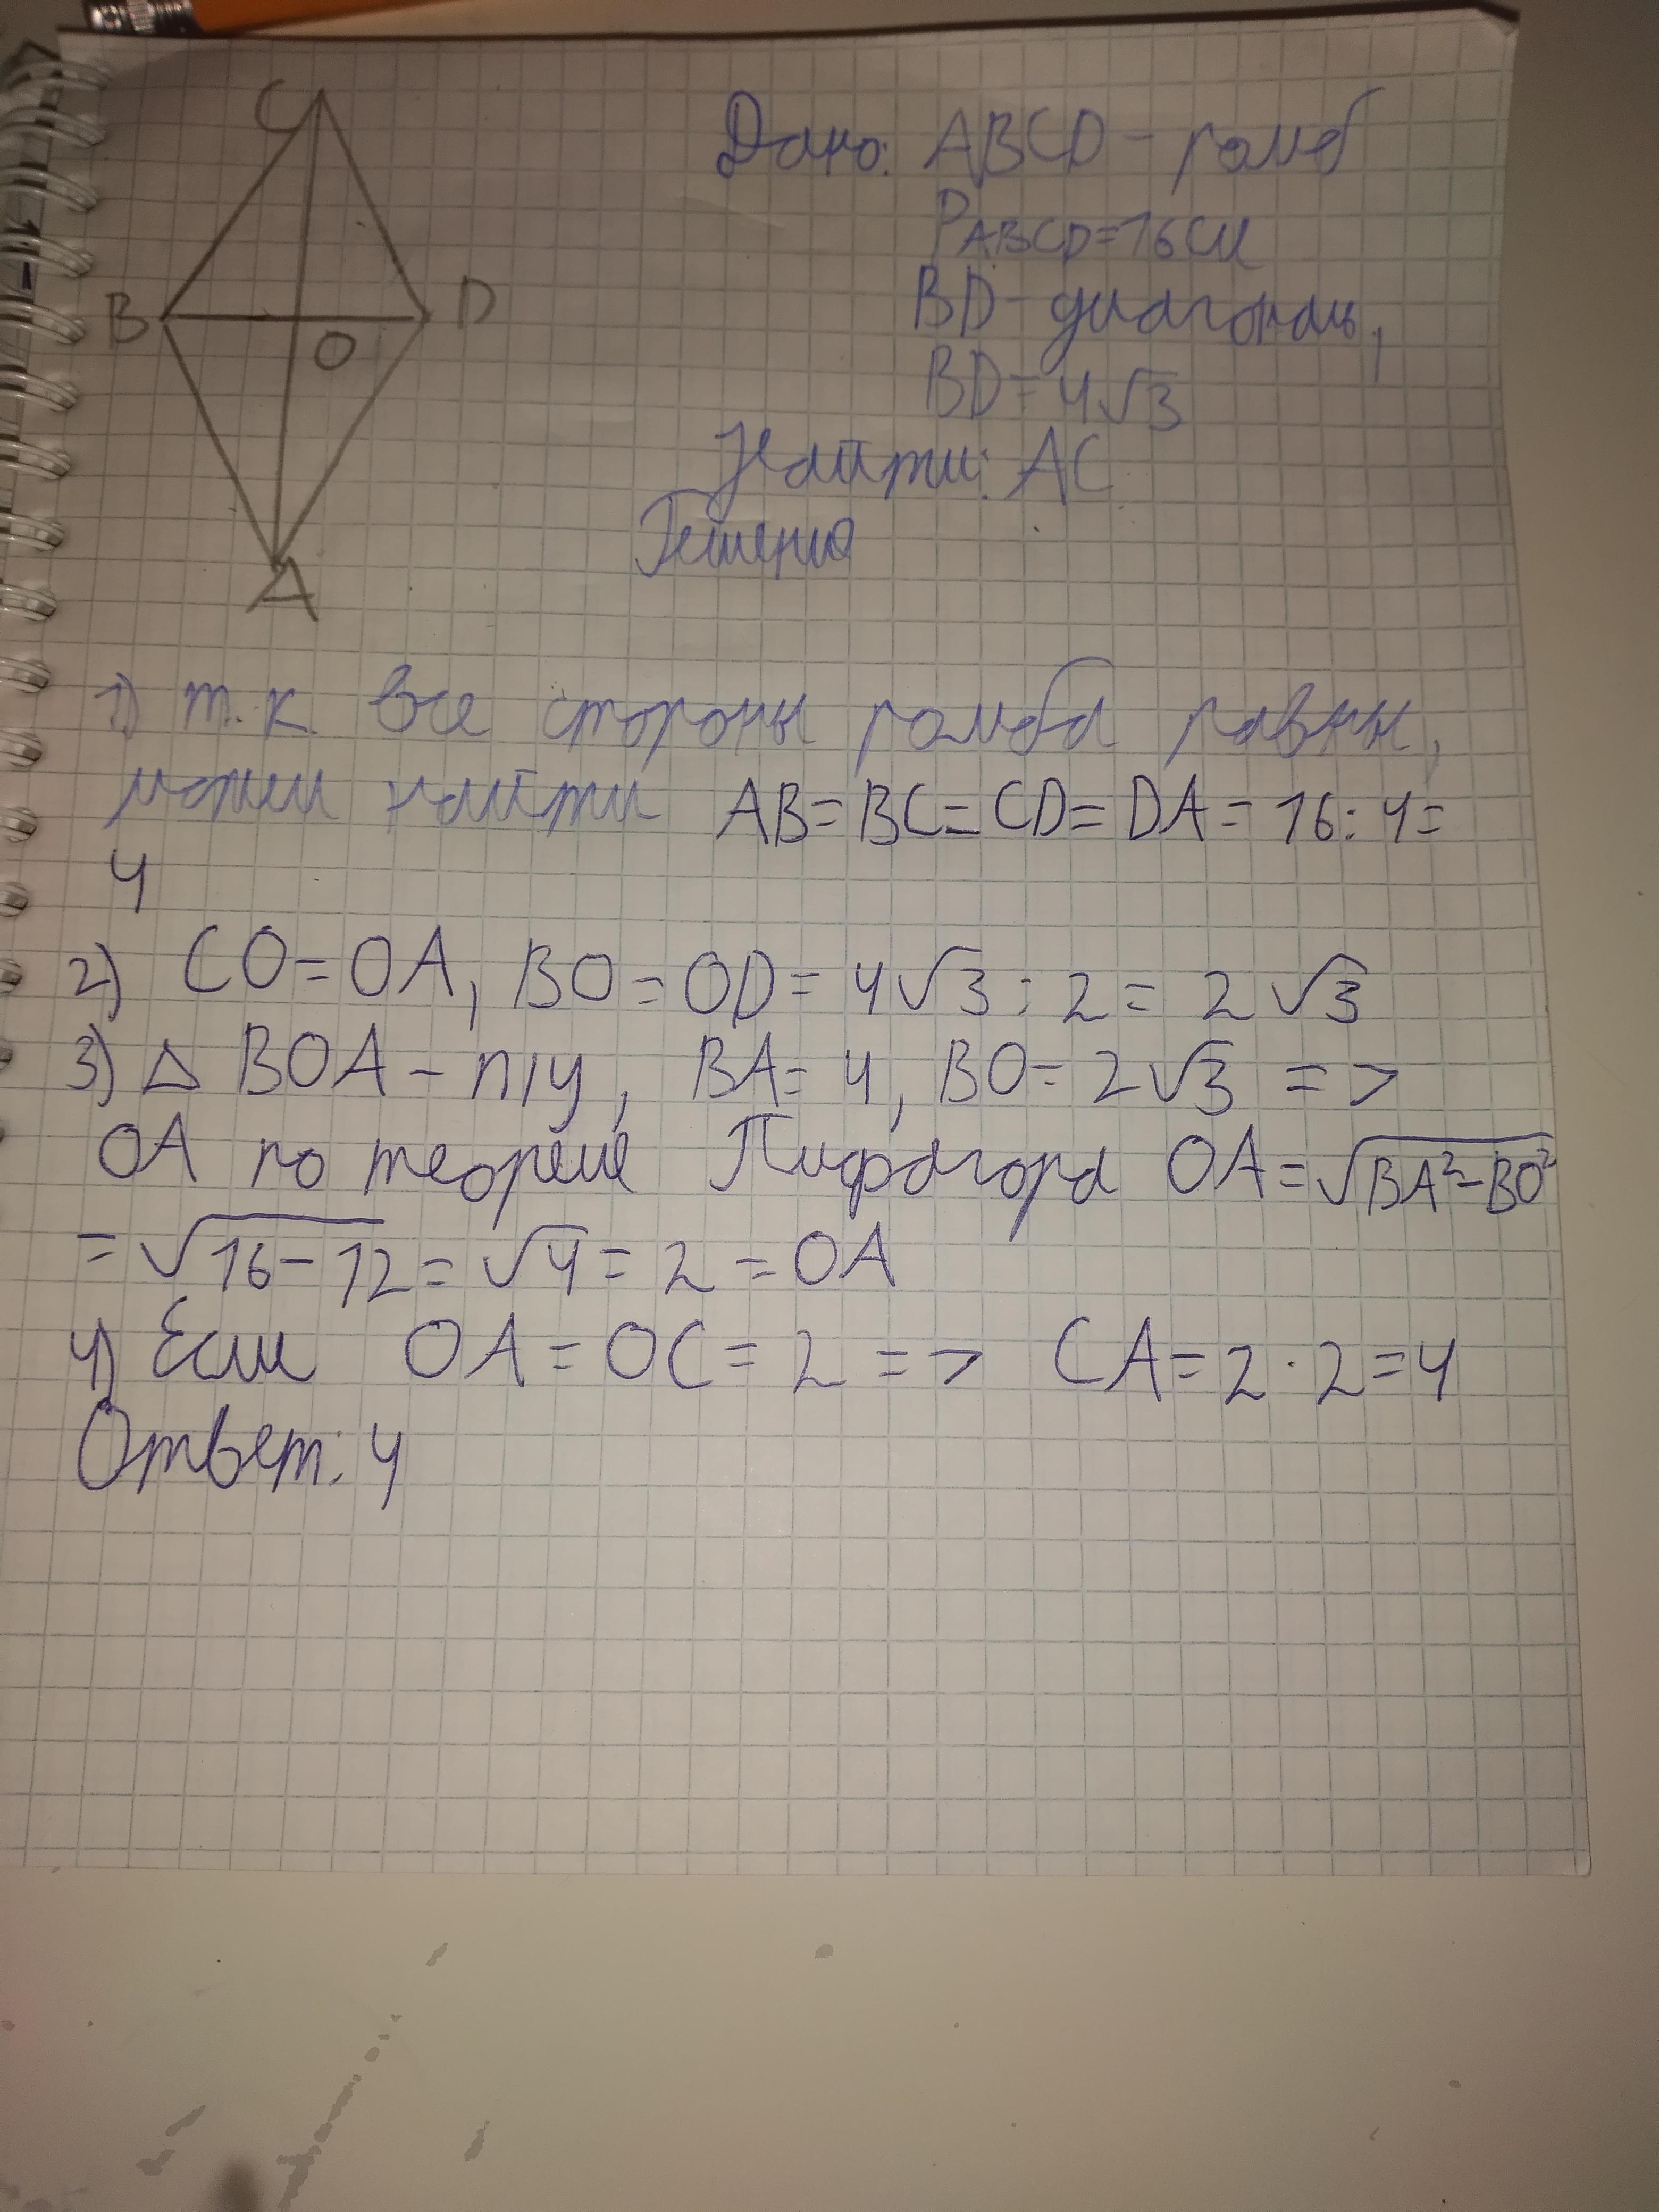 C
B
D
O
A
Дано: ABCD - ромб
PABCD=16см
BD - диагональ,
BD=4√3
Найти: AC
Решение
1) т.к. все стороны ромба равны,
можем найти AB=BC=CD=DA=16:4=
4
2) CO=OA, BO=OD=4√3:2=2√3
3) △ BOA - п/у, BA=4, BO=2√3 =>
OA по теореме Пифагора OA=√BA²-BO²
=√16-12=√4=2=OA
4) Если OA=OC=2 => CA=2·2=4
Ответ: 4